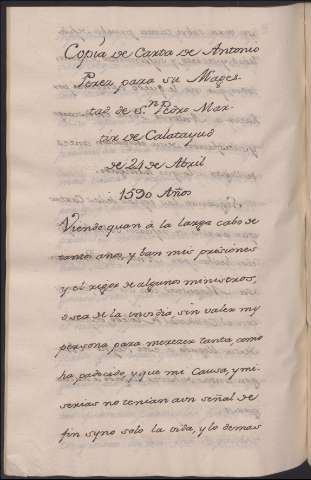 Copia de Carta de Antonio
Perez para su Mages-
tad de S.n Pedro Mar-
tir de Calatayud
de 24 de Abril
1590 Años
Viendo quan á la larga cabo de
tanto años, y van mis prisiones
y el rigor de algunos ministros,
o sea de la invidia, sin valer my
persona para merezer tanta, como
ha padecido, y que mi Causa, y mi-
serias no tenian aun señal de
fin syno solo la vida, y lo demas